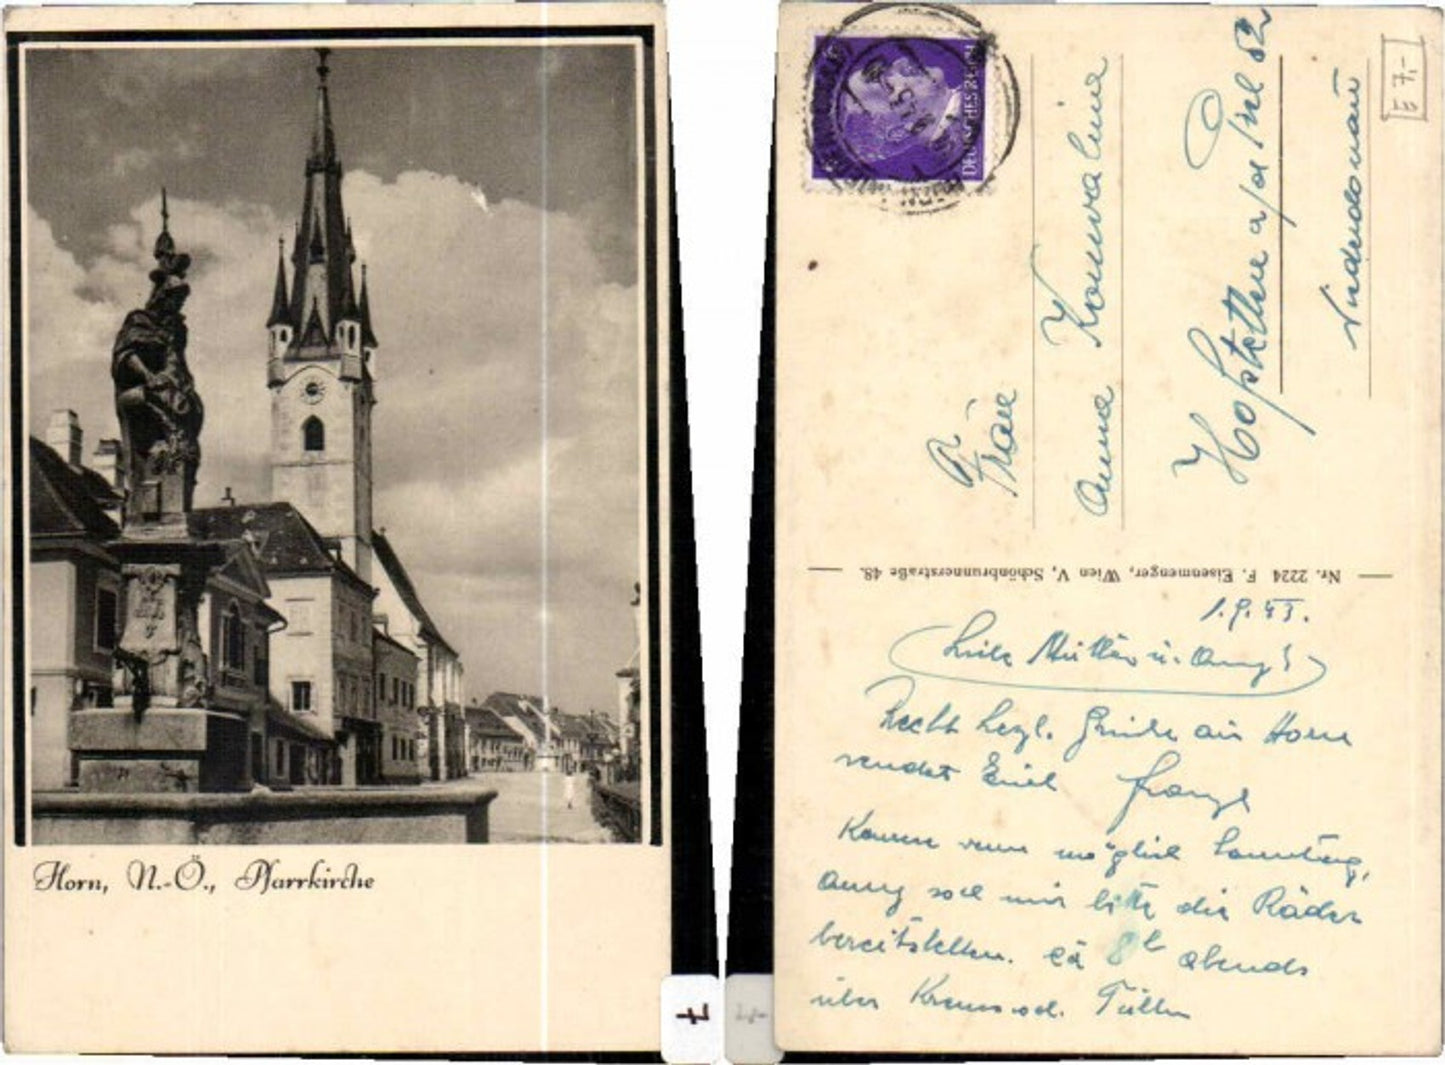 Horn, N.-Ö., Pfarrkirche
7
DEUTSCHES REICH
Frau
Anna Konvalina
Hofstetten a/d Piel 82
Niederdonau
E 7,-
Nr. 2224 F. Eisenmenger, Wien V, Schönbrunnerstraße 48.
1.9.43.
Liebe Mutter u. Anny!
Recht herzl. Grüße aus Horn
sendet Euch Franzl
Komme wenn möglich Sonntag,
Anny soll mir bitte die Räder
bereitstellen. ca 8h abends
über Krems od. Tulln